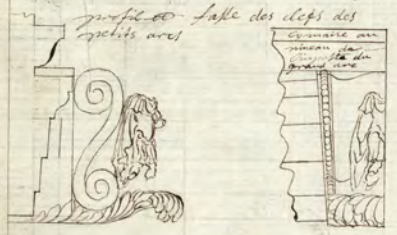 profil et fasse des clefs des
petits arcs
cornaire au
niveau de
l'imposte du
grand arc